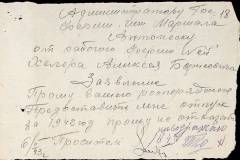 Администратору Гос
Фермы им. Маршала
Антонеску
от рабочего Фермы №
Алексея Борисовича
Заявление
Прошу вашего распоряжения
Предоставить мне отпуск
за 1942 год прошу не отказать
Проситель
18